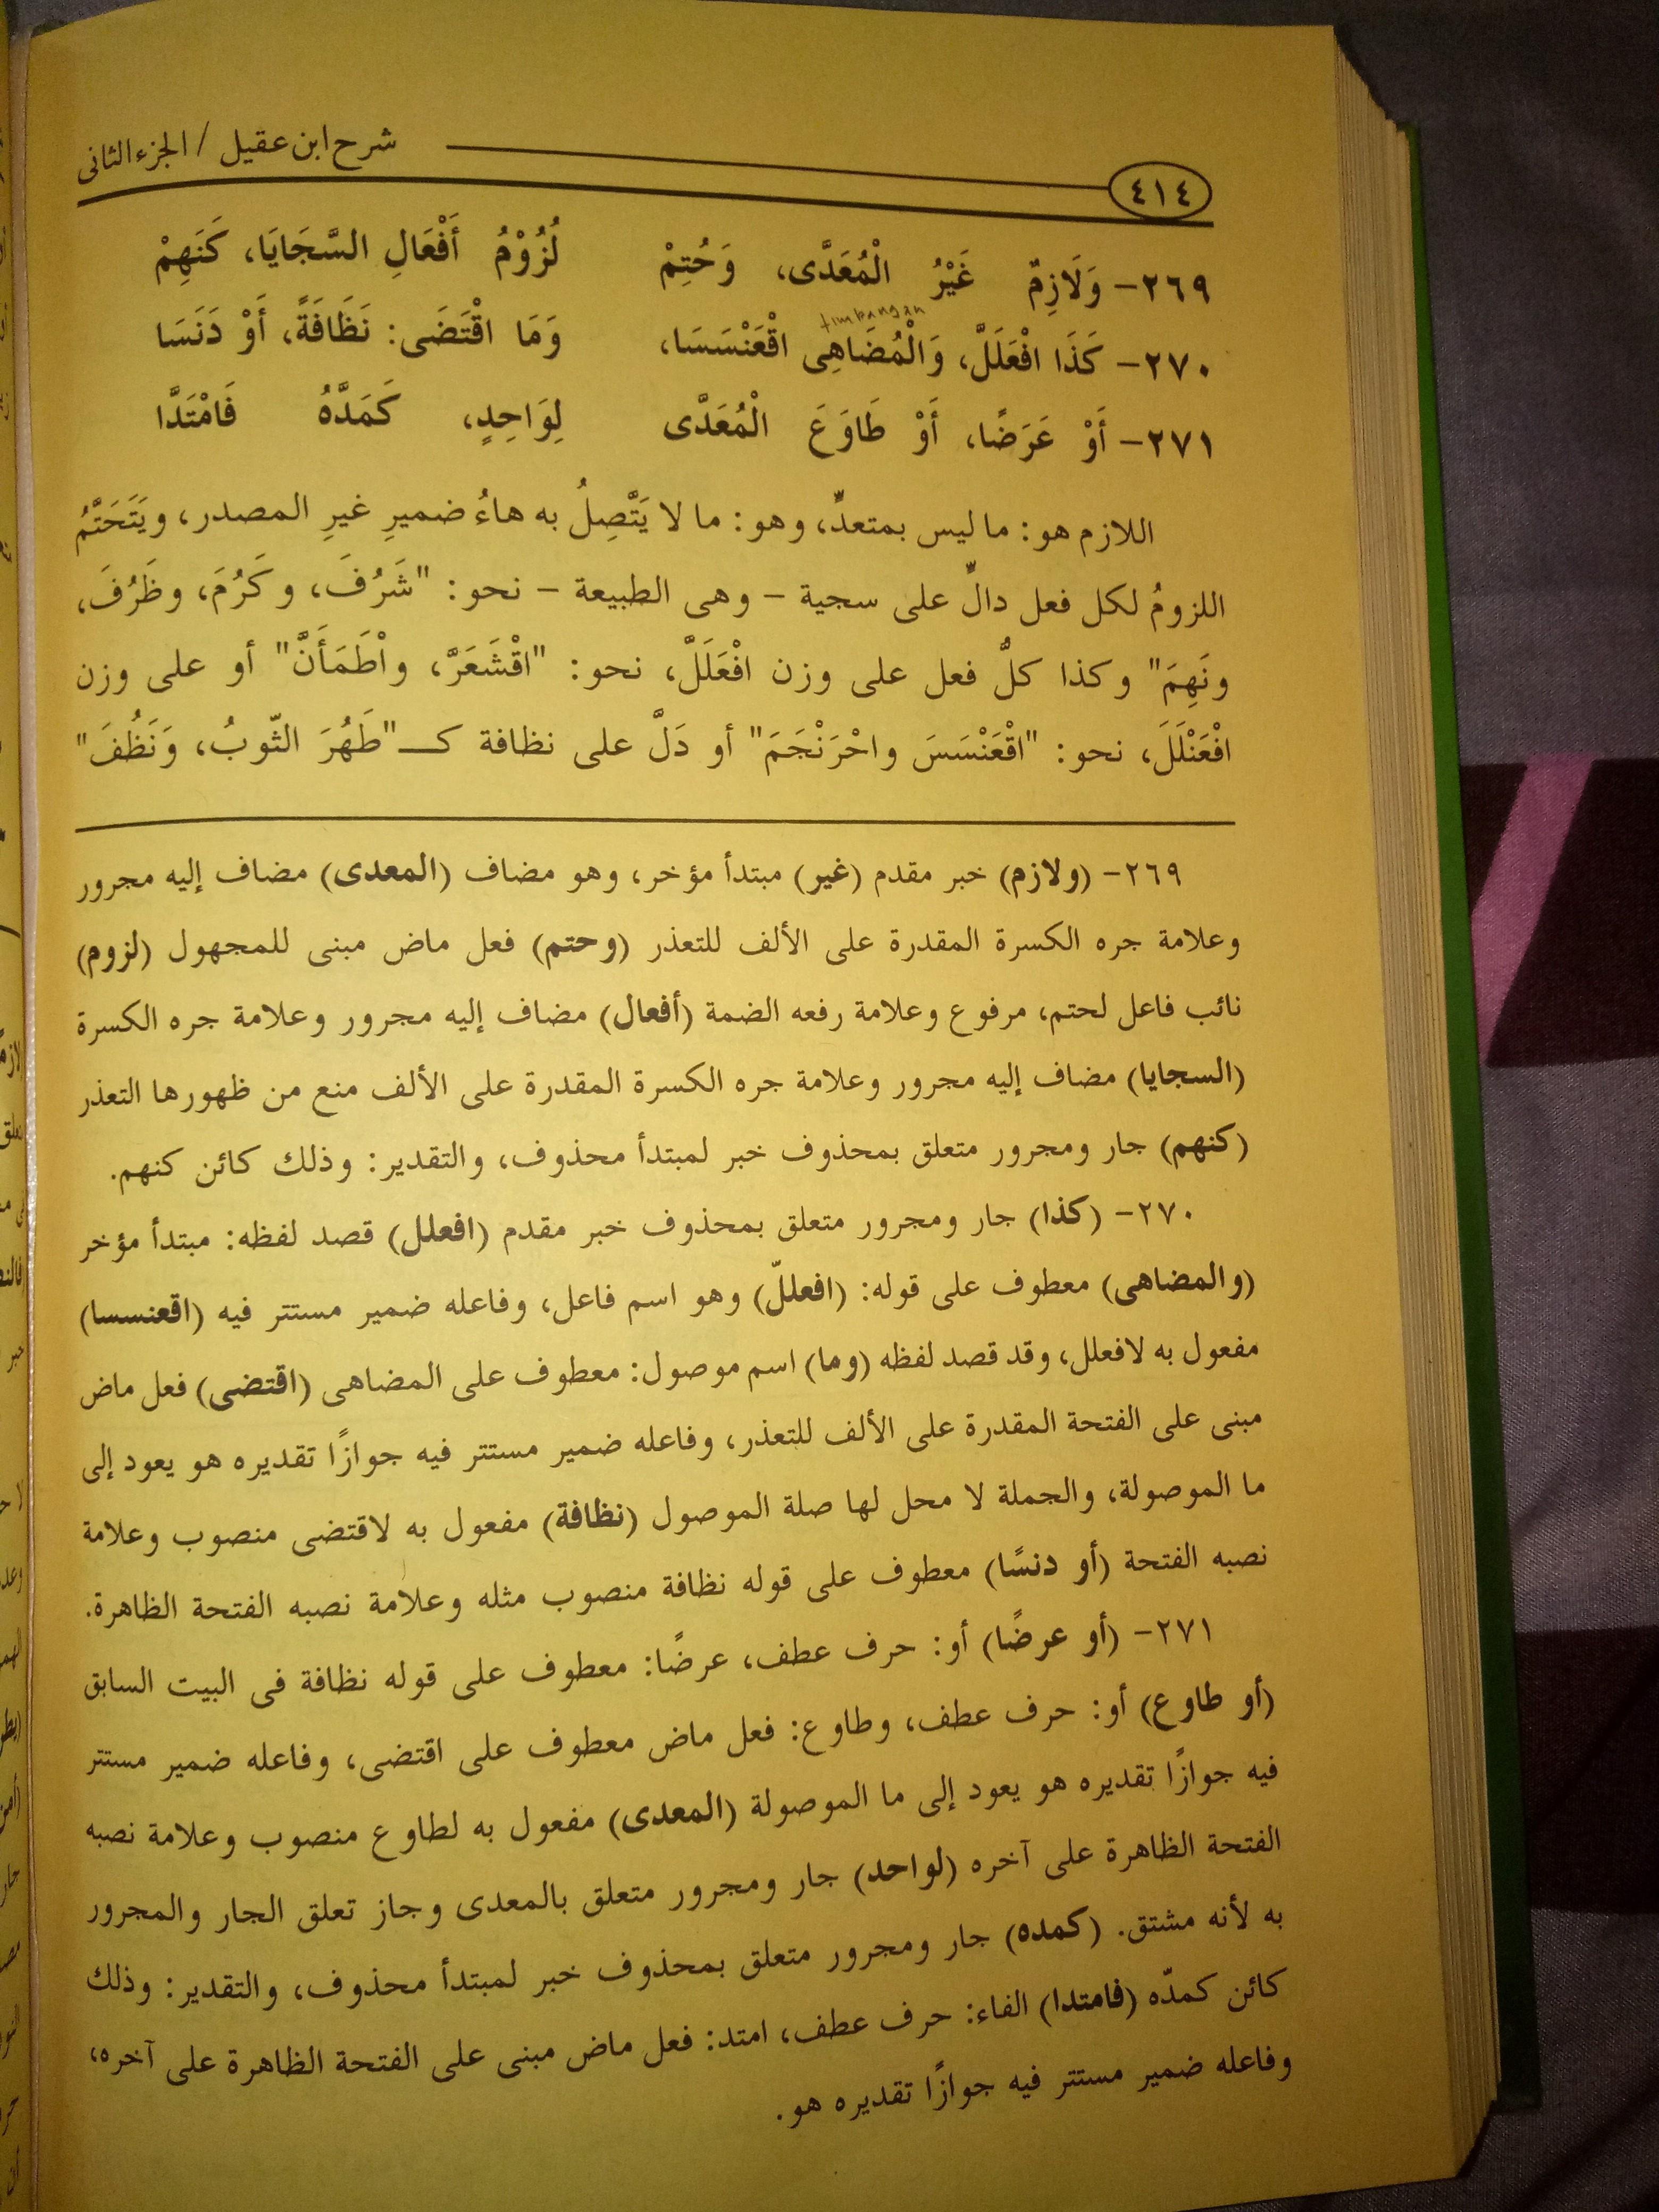 شرح ابن عقيل / الجزء الثانى
٤١٤
٢٦٩- وَلَازِمٌ غَيْرُ الْمُعَدَّى، وَحُتِمْ لُزُوْمُ أَفْعَالِ السَّجَايَا، كَنَهِمْ
timbangan
٢٧٠- كَذَا افْعَلَلَّ، وَالْمُضَاهِى اقْعَنْسَسَا، وَمَا اقْتَضَى: نَظَافَةً، أَوْ دَنَسَا
٢٧١- أَوْ عَرَضًا، أَوْ طَاوَعَ الْمُعَدَّى لِوَاحِدٍ، كَمَدَّهُ فَامْتَدَّا
اللازم هو: ما ليس بمتعدٍّ، وهو: ما لا يَتَّصِلُ به هاءُ ضميرِ غيرِ المصدر، ويَتَحَتَّمُ
اللزومُ لكل فعل دالٍّ على سجية - وهى الطبيعة - نحو: "شَرُفَ، وكَرُمَ، وظَرُفَ،
ونَهِمَ" وكذا كلُّ فعل على وزن افْعَلَلَّ، نحو: "اقْشَعَرَّ، واْطَمَأَنَّ" أو على وزن
افْعَنْلَلَ، نحو: "اقْعَنْسَسَ واحْرَنْجَمَ" أو دَلَّ على نظافة كـ"طَهُرَ الثّوبُ، وَنَظُفَ"
٢٦٩- (ولازم) خبر مقدم (غير) مبتدأ مؤخر، وهو مضاف (المعدى) مضاف إليه مجرور
وعلامة جره الكسرة المقدرة على الألف للتعذر (وحتم) فعل ماض مبنى للمجهول (لزوم)
نائب فاعل لحتم، مرفوع وعلامة رفعه الضمة (أفعال) مضاف إليه مجرور وعلامة جره الكسرة
(السجايا) مضاف إليه مجرور وعلامة جره الكسرة المقدرة على الألف منع من ظهورها التعذر
(كنهم) جار ومجرور متعلق بمحذوف خبر لمبتدأ محذوف، والتقدير: وذلك كائن كنهم.
٢٧٠- (كذا) جار ومجرور متعلق بمحذوف خبر مقدم (افعلل) قصد لفظه: مبتدأ مؤخر
(والمضاهى) معطوف على قوله: (افعللّ) وهو اسم فاعل، وفاعله ضمير مستتر فيه (اقعنسسا)
مفعول به لافعلل، وقد قصد لفظه (وما) اسم موصول: معطوف على المضاهى (اقتضى) فعل ماض
مبنى على الفتحة المقدرة على الألف للتعذر، وفاعله ضمير مستتر فيه جوازًا تقديره هو يعود إلى
ما الموصولة، والجملة لا محل لها صلة الموصول (نظافة) مفعول به لاقتضى منصوب وعلامة
نصبه الفتحة (أو دنسًا) معطوف على قوله نظافة منصوب مثله وعلامة نصبه الفتحة الظاهرة.
٢٧١- (أو عرضًا) أو: حرف عطف، عرضًا: معطوف على قوله نظافة فى البيت السابق
(أو طاوع) أو: حرف عطف، وطاوع: فعل ماض معطوف على اقتضى، وفاعله ضمير مستتر
فيه جوازًا تقديره هو يعود إلى ما الموصولة (المعدى) مفعول به لطاوع منصوب وعلامة نصبه
الفتحة الظاهرة على آخره (لواحد) جار ومجرور متعلق بالمعدى وجاز تعلق الجار والمجرور
به لأنه مشتق. (كمده) جار ومجرور متعلق بمحذوف خبر لمبتدأ محذوف، والتقدير: وذلك
كائن كمدّه (فامتدا) الفاء: حرف عطف، امتد: فعل ماض مبنى على الفتحة الظاهرة على آخره،
وفاعله ضمير مستتر فيه جوازًا تقديره هو.